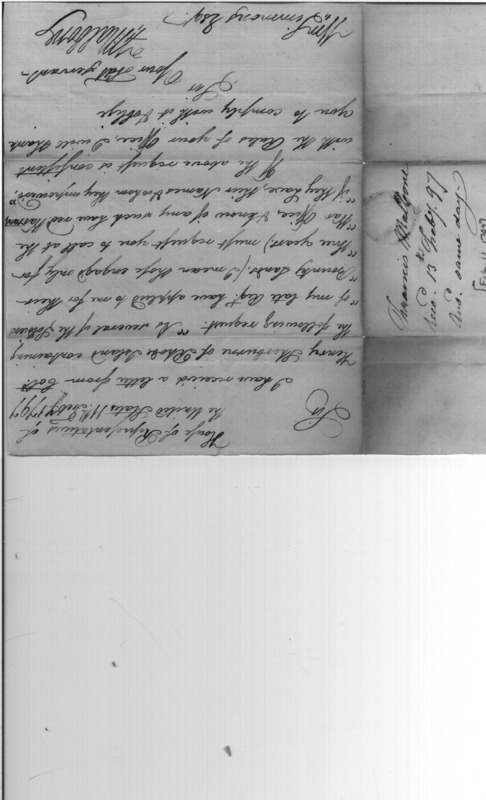 House of Representatives of
the United States 11th Feby 1797
Sir
I have received a letter from Colo
Henry Sherburne of Rhode Island containing
the following request. "As several of the Soldiers
"of my late Regt. have applied to me for their
"Bounty Lands, (I mean those engag'd only for
"three years) must request you to call at the
"War Office, & know if any such have not Warrants,
"if they have, their Names & whom they impower'd."
If the above request is consistent
with the Rules of your Office, I will thank
you to comply with it & oblige
Sir
Your Obt servant
F. Malbone
Wm Simmons Esqr.
Francis Malbone
Rec. 13th Feby. 97
Ansd. same day.
[Feb. 11, 1797]